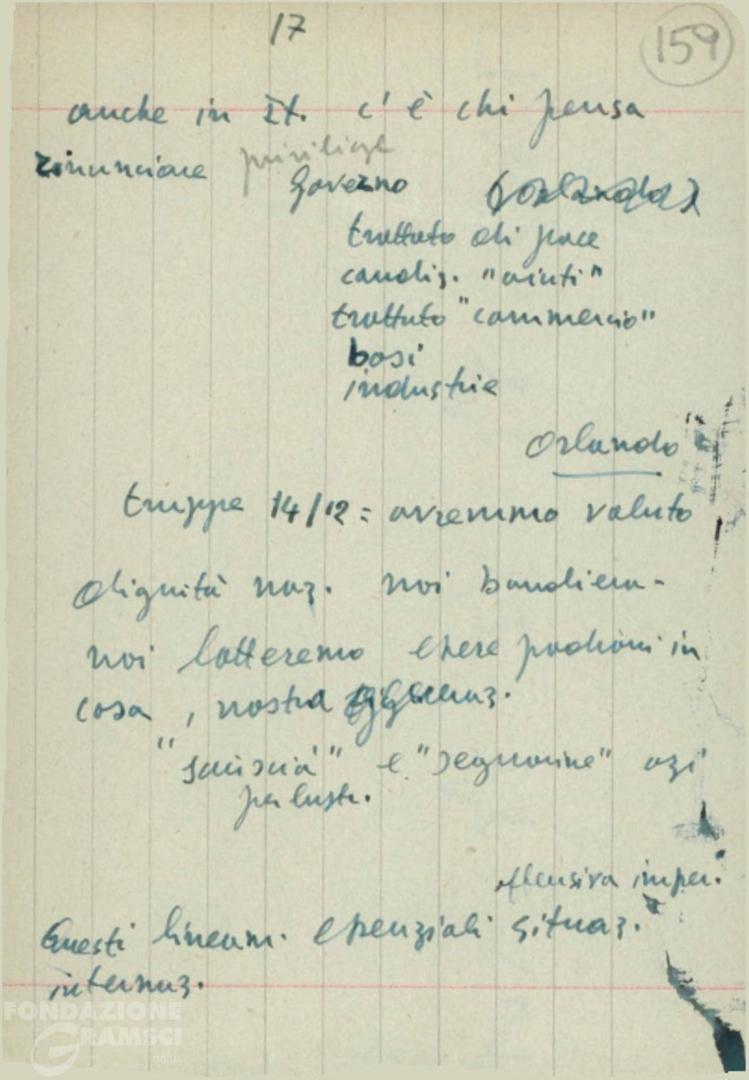 17
159
anche in It. c'è chi pensa
rinunciare privilege
Governo (Orlando)
trattato di pace
condiz. "aiuti"
trattato "commercio"
basi
industrie
Orlando
truppe 14/12 = avremmo voluto
dignità naz. noi bandiera -
noi lotteremo essere padroni in
casa, nostra
"sciuscià" e "segnorine" ogi
per lustr.
offensiva imper.
Questi lineam. essenziali situaz.
internaz.
FONDAZIONE
GRAMSCI
onlus